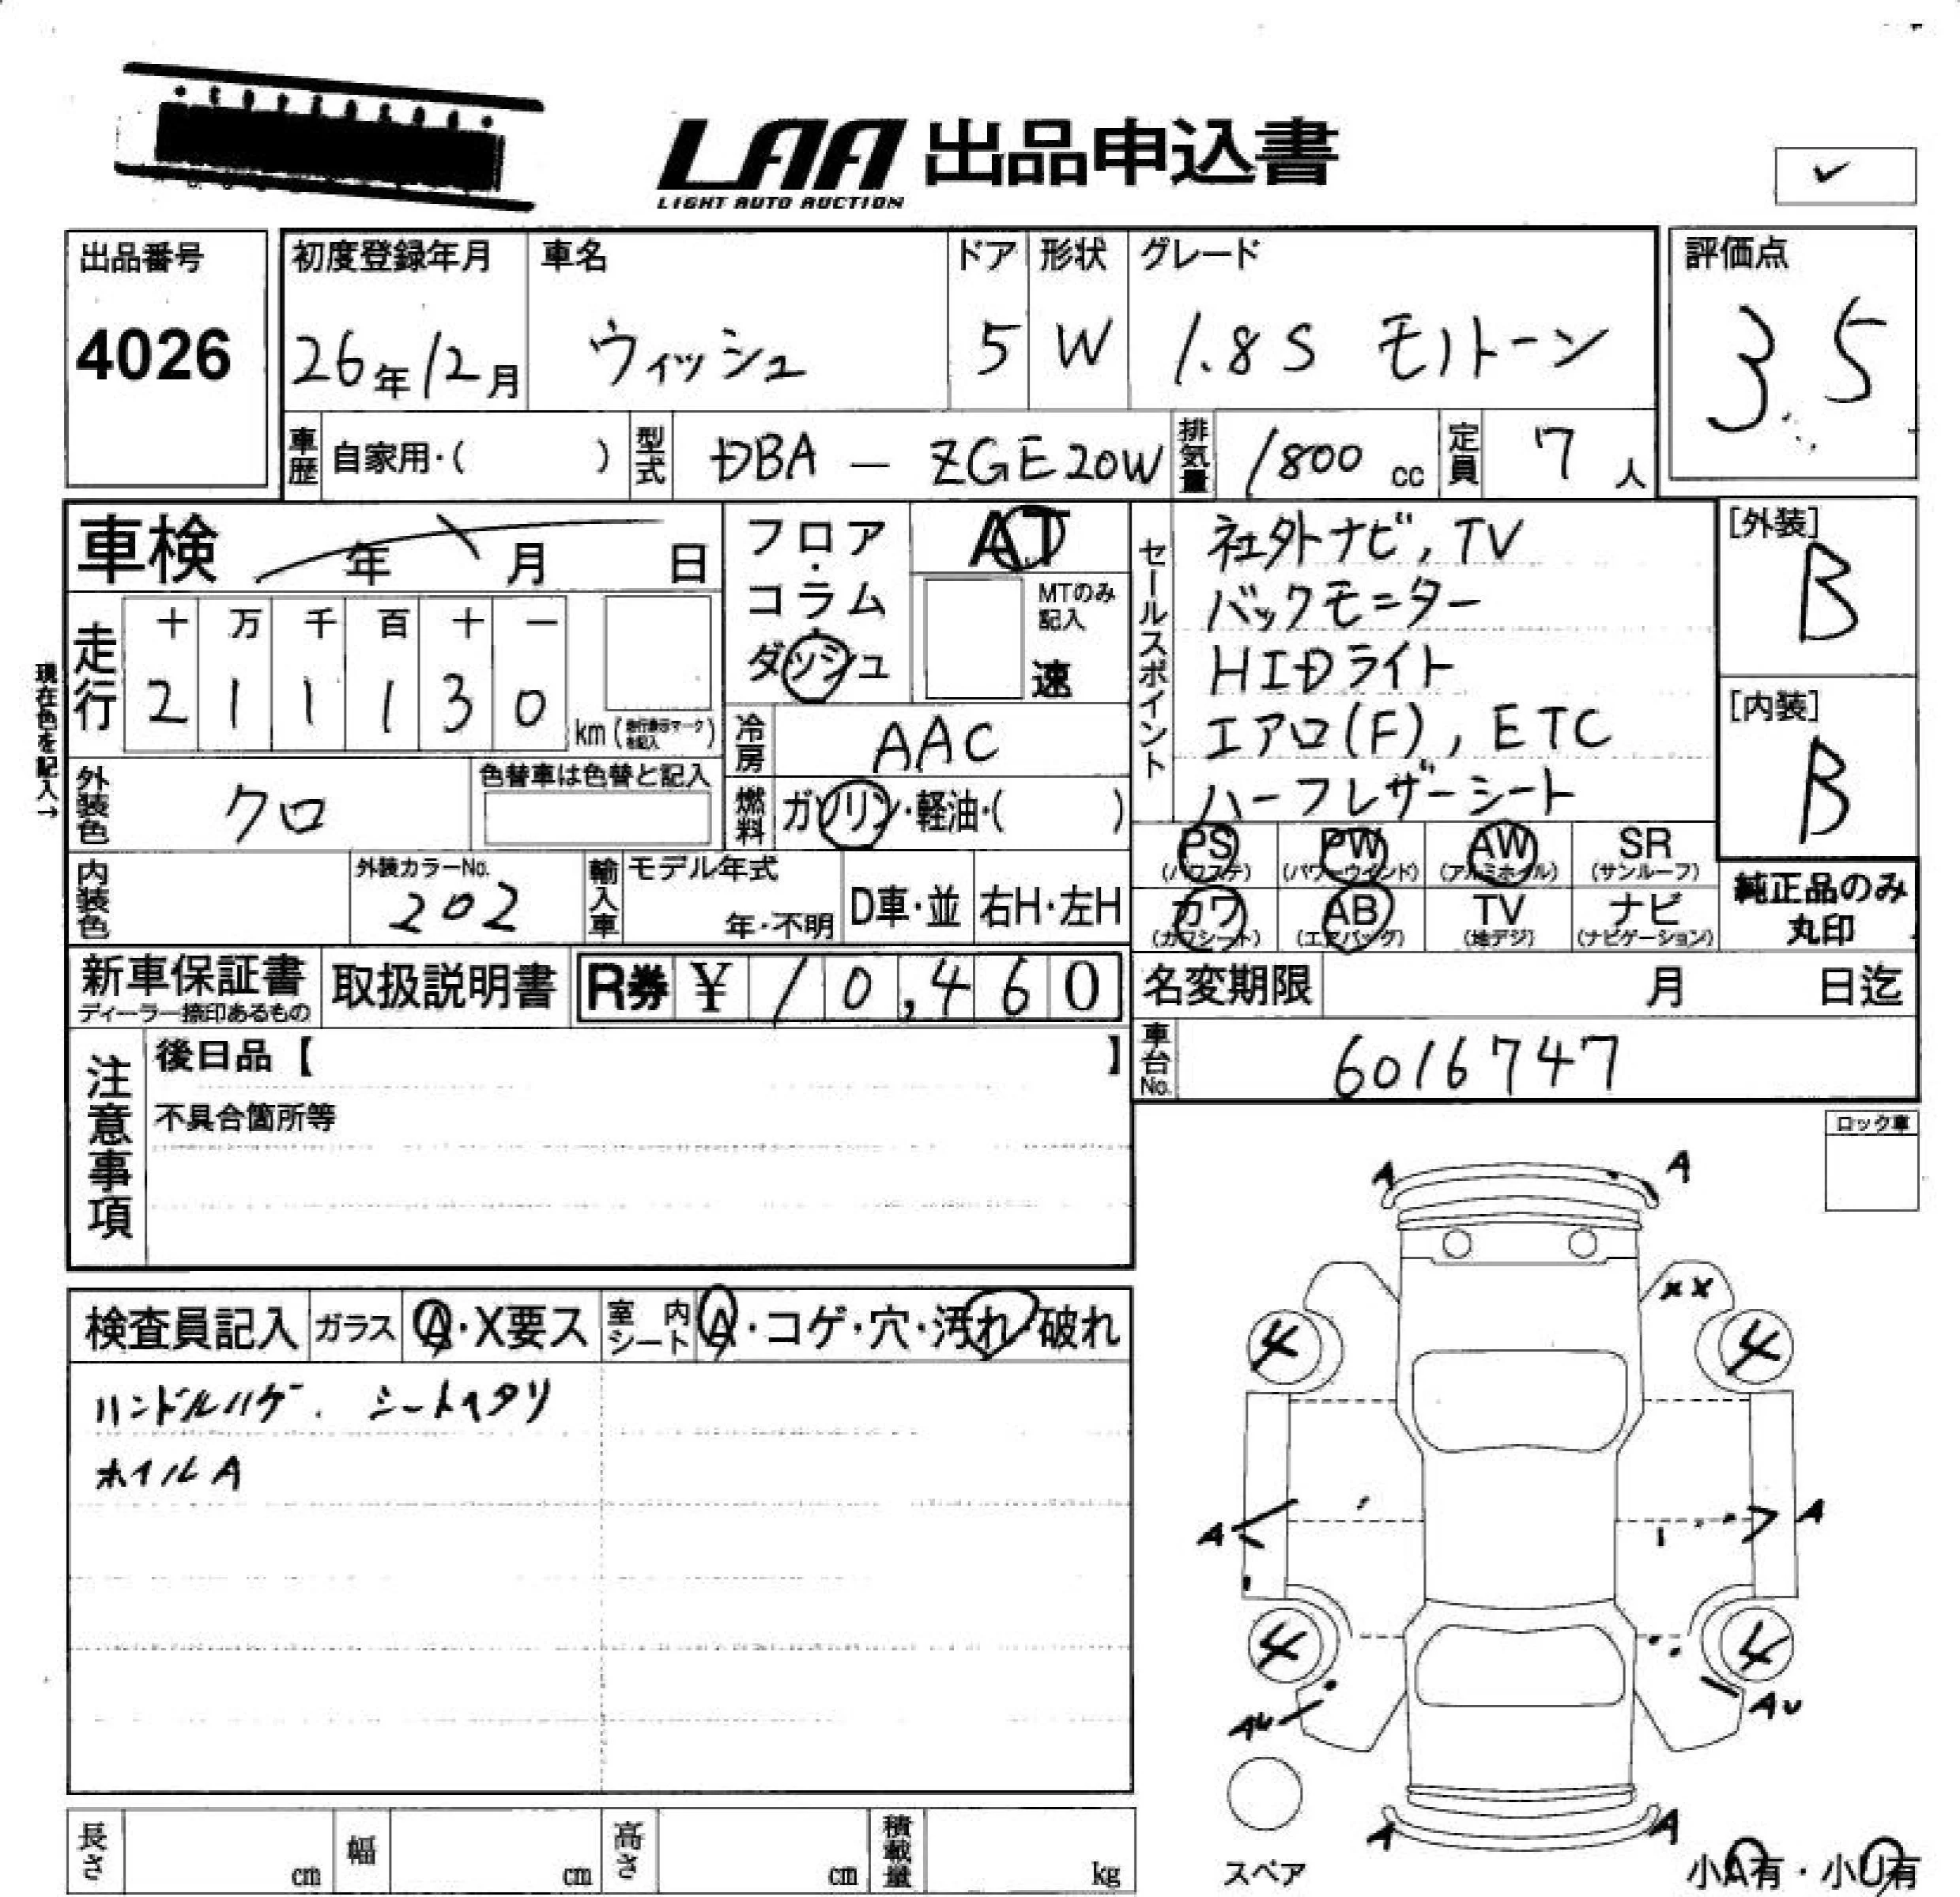 LAA 出品申込書
LIGHT AUTO AUCTION
出品番号
4026
初度登録年月
26年12月
車名
ウィッシュ
ドア
5
形状
W
グレード
1.8S モノトーン
評価点
3.5
車歴 自家用・( )
型式 DBA - ZGE20W
排気量 1800 cc
定員 7 人
車検 年 月 日
フロア・コラム・ダッシュ
AT
MTのみ記入
速
走行
十 万 千 百 十 一
2 1 1 1 3 0 km
現在色を記入→
冷房 AAC
燃料 ガソリン・軽油・( )
外装色 クロ
色替車は色替と記入
内装色
外装カラーNo.
202
輸入車
モデル年式
年・不明
D車・並
右H・左H
セールスポイント
社外ナビ, TV
バックモニター
HIDライト
エアロ(F), ETC
ハーフレザーシート
[外装]
B
[内装]
B
PS (パワステ)
PW (パワーウインド)
AW (アルミホイル)
SR (サンルーフ)
カワ (カワシート)
AB (エアバッグ)
TV (地デジ)
ナビ (ナビゲーション)
純正品のみ
丸印
新車保証書
ディーラー捺印あるもの
取扱説明書
R券 ¥ 10,460
名変期限 月 日迄
車台No. 6016747
注意事項
後日品【 】
不具合箇所等
ロック車
検査員記入
ガラス A・X要ス
室内シート A・コゲ・穴・汚れ・破れ
ハンドルハゲ. シートヘタリ
ホイルA
A A
XX
4 4
A A
4 4
AU AU
A A
スペア
小A有・小U有
長さ cm
幅 cm
高さ cm
積載量 kg